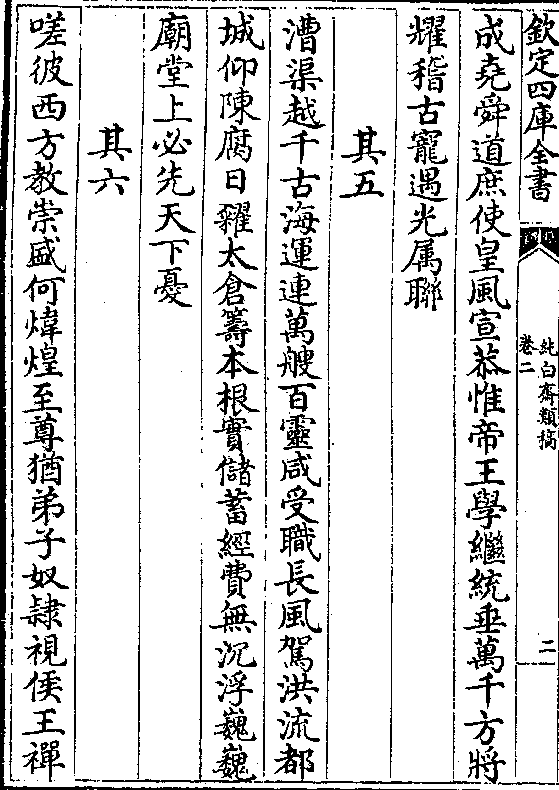 欽定四庫全書
純白齋類稿
卷二
二
成堯舜道庶使皇風宣恭惟帝王學繼統垂萬千方將
耀稽古寵遇光属聯
其五
漕渠越千古海運連萬艘百靈咸受職長風駕洪流都
城仰陳腐日糴太倉籌本根實儲蓄經費無沉浮巍巍
廟堂上必先天下憂
其六
嗟彼西方教崇盛何煒煌至尊猶弟子奴隷視侯王禪